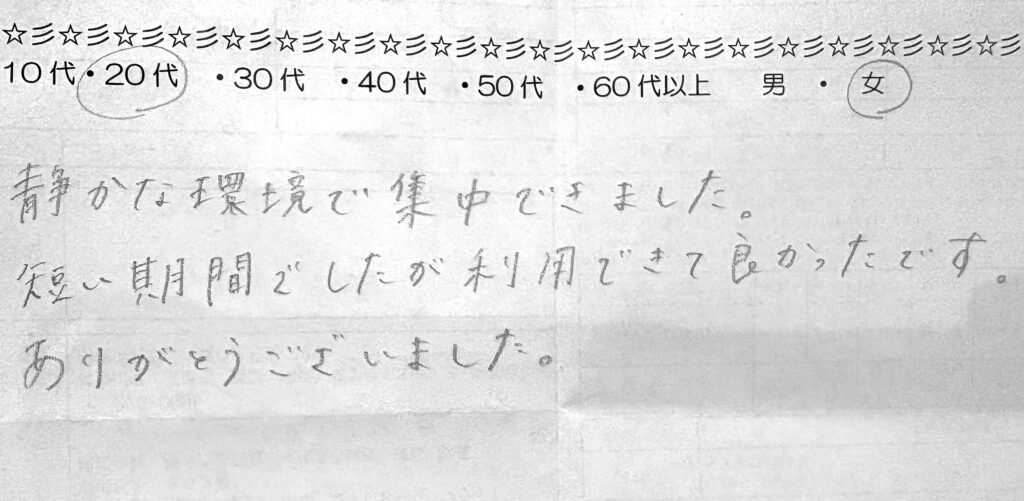 ☆彡☆彡☆彡☆彡☆彡☆彡☆彡☆彡☆彡☆彡☆彡☆彡☆彡☆彡☆彡☆彡☆彡☆彡☆彡
10代・20代 ・30代 ・40代 ・50代 ・60代以上 男 ・ 女
静かな環境で集中できました。
短い期間でしたが利用できて良かったです。
ありがとうございました。